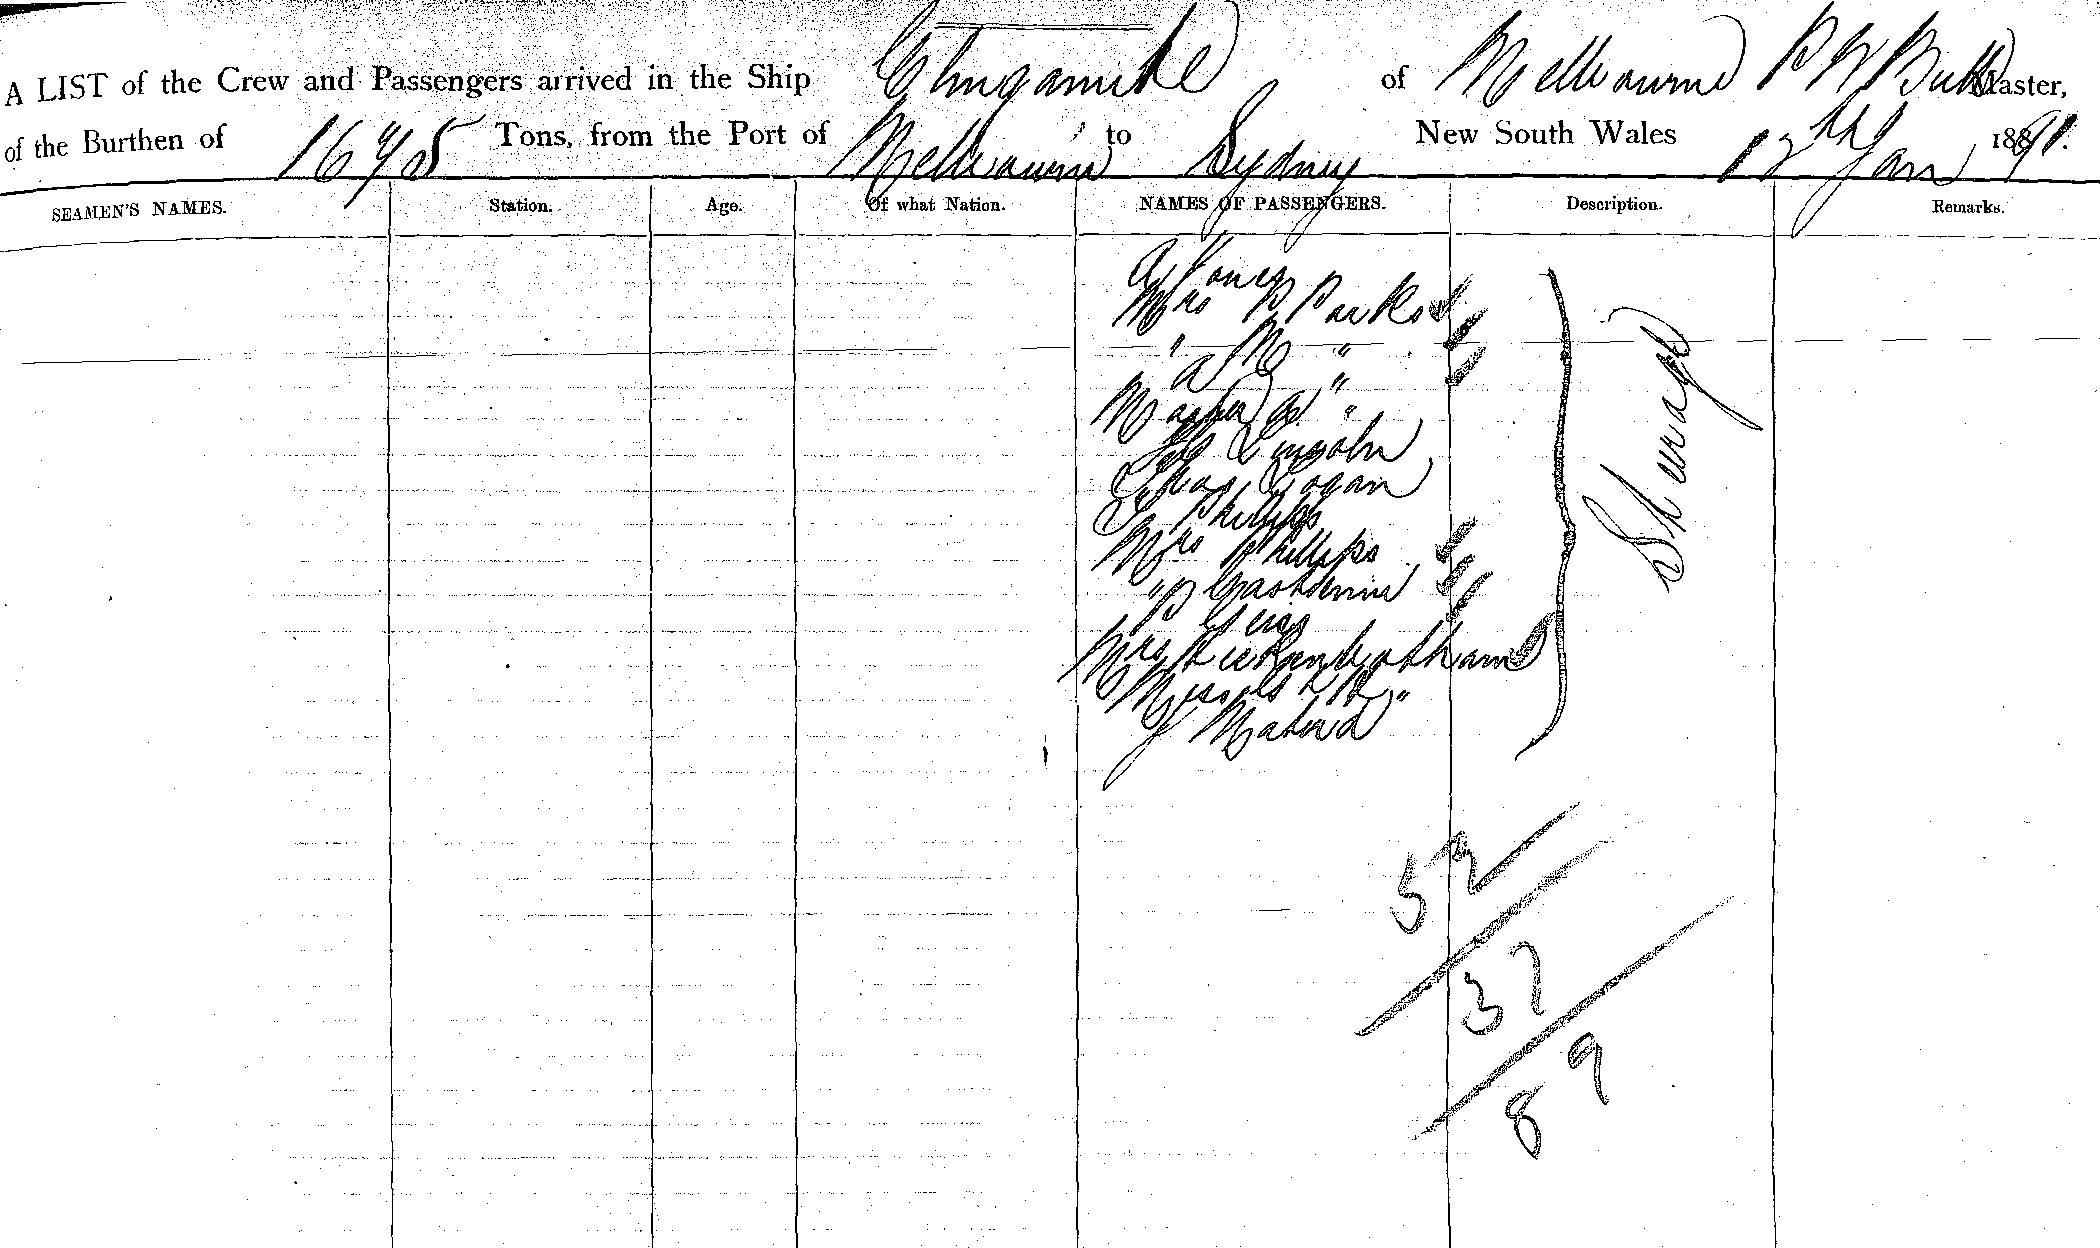 A LIST of the Crew and Passengers arrived in the Ship Elingamite of Melbourne P W Bull Master,
of the Burthen of 1675 Tons, from the Port of Melbourne to Sydney New South Wales 12th Jan 1891.
SEAMEN'S NAMES. Station. Age. Of what Nation. NAMES OF PASSENGERS. Description. Remarks.
A Jones
Mrs P Parkes
" M "
A "
Master "
Lincoln
Chas Logan
Phillips
Mrs Phillips
" P
Mrs Hickenbotham
Misses "
J
Steerage
52
37
89